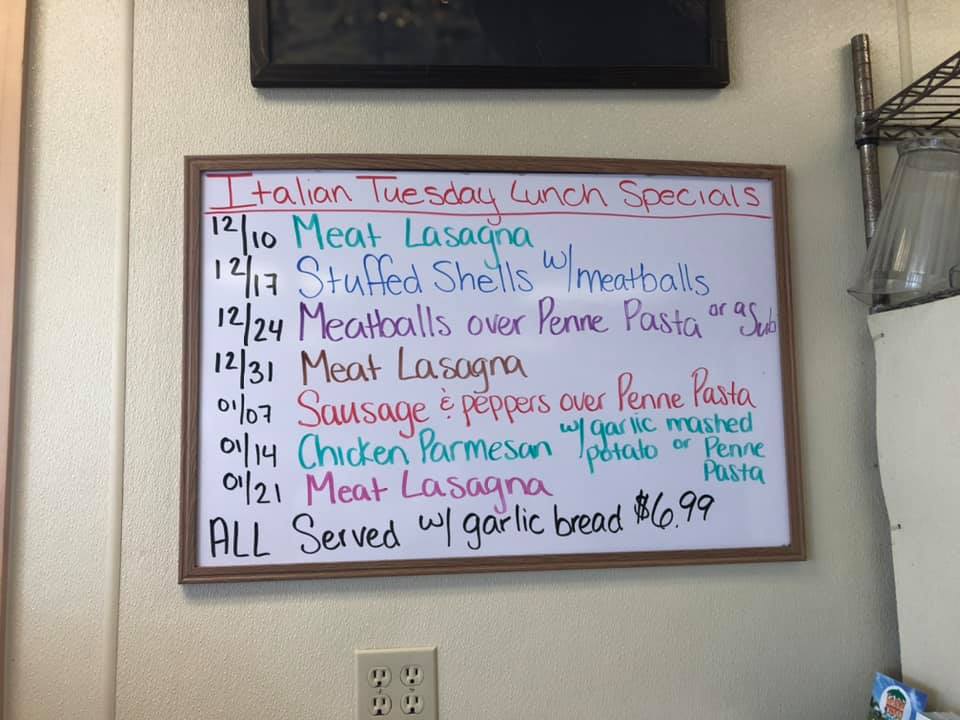 Italian Tuesday Lunch Specials
12/10 Meat Lasagna
12/17 Stuffed Shells w/meatballs
12/24 Meatballs over Penne Pasta or a Sub
12/31 Meat Lasagna
01/07 Sausage & peppers over Penne Pasta
01/14 Chicken Parmesan w/ garlic mashed
potato or Penne
Pasta
01/21 Meat Lasagna
ALL Served w/ garlic bread $6.99